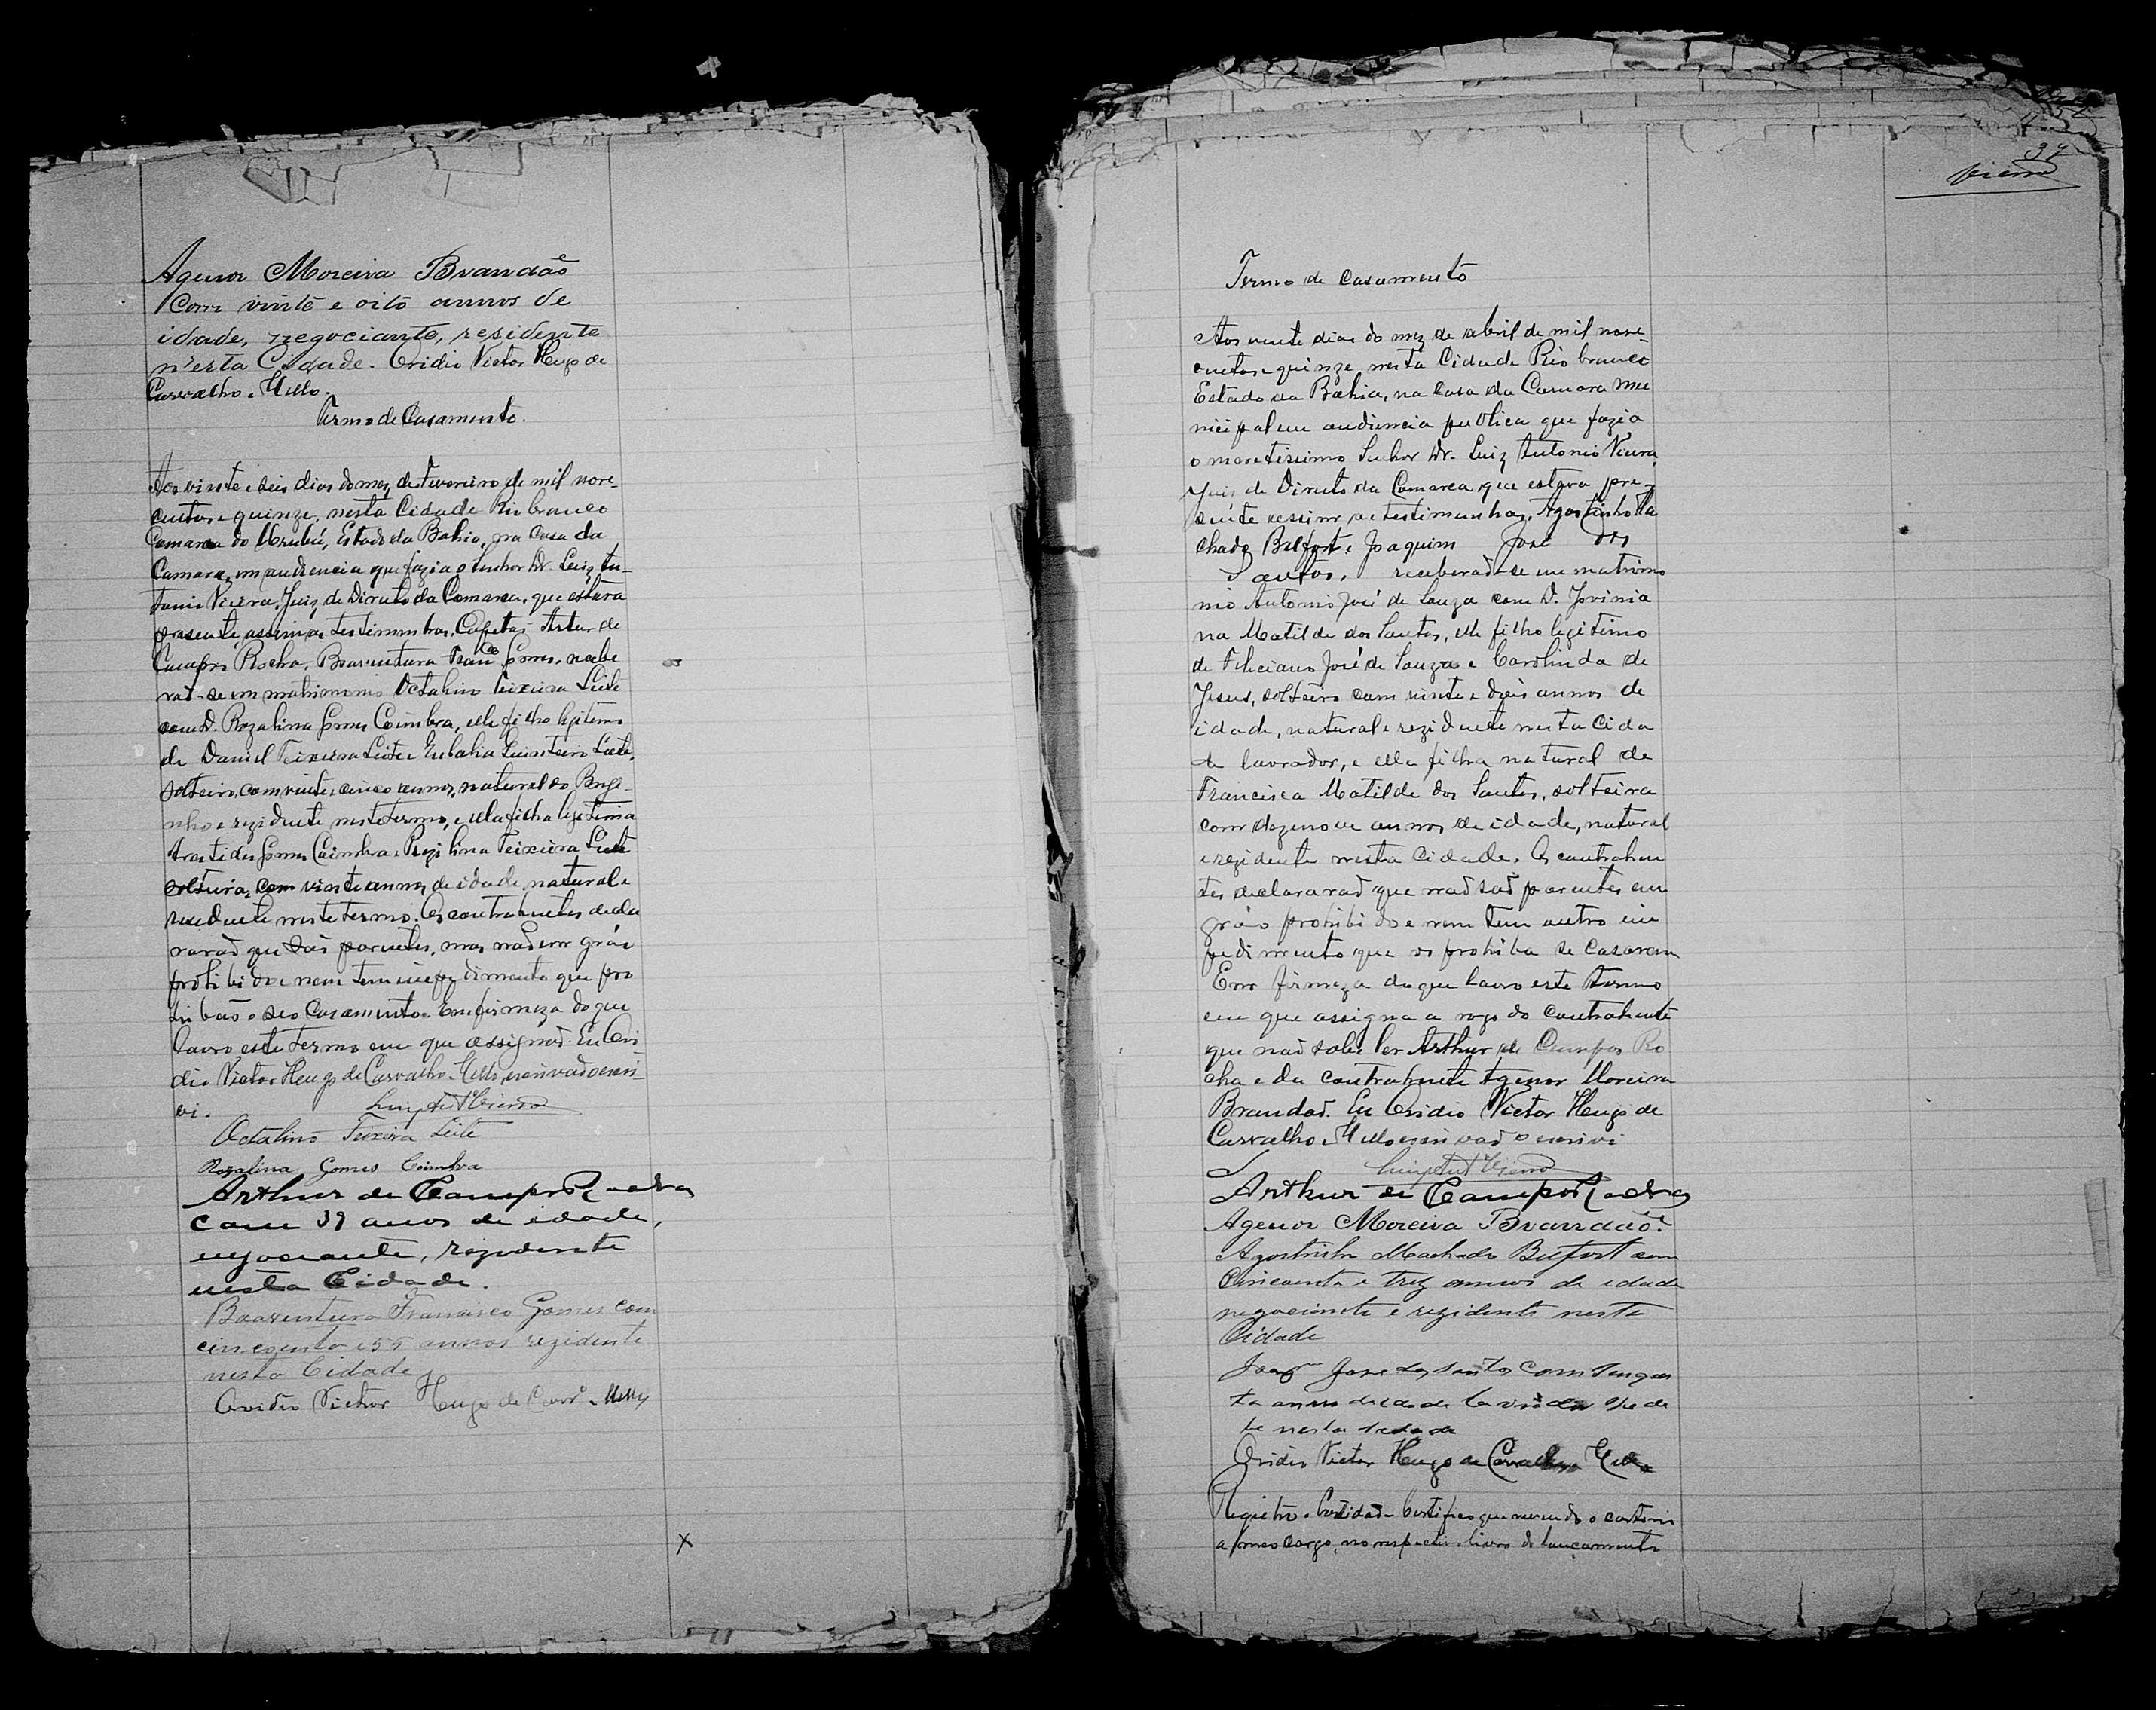 Agenor Moreira Brandão
Com vinte e oito annos de
idade, negociante, residente
n'esta Cidade. Ovidio Victor Hugo de
Carvalho e Mello.
Termo de Casamento.
Aos vinte e seis dias do mez de Fevereiro de mil nove-
centos e quinze, nesta Cidade Rio branco
Comarca do Urubú, Estado da Bahia, na Casa da
Camara, em audiencia que fazia o Senhor Dr. Luiz An-
tonio Vieira, Juiz de Direito da Comarca, que estava
presente, assim as testimunhas, Capitaõ Artur de
Campos Rocha, Boaventura Franco Gomes, recebe
raõ-se em matrimonio Octalino Teixeira Leite
com D. Rozalina Gomes Coimbra, elle filho legitimo
de Daniel Teixeira Leite e Eulalia Leite,
solteiro, com vinte e cinco annos, natural do Breji-
nho e rezidente neste termo, e ella filha legitima
Gomes Coimbra e Teixeira Leite
solteira, com vinte annos de idade, natural e
rezidente neste termo. Os contrahentes decla
raraõ que saõ parentes, mas naõ em gráo
prohibido e nem tem impedimento que pro
hibaõ o seo Casamento. Em firmeza do que
lavro este termo em que assignaõ. Eu Ovi
dio Victor Hugo de Carvalho e Mello, escrivaõ o escre-
vi.
Luiz Ant Vieira
Octalino Teixeira Leite
Rozalina Gomes Coimbra
Arthur de Campos Rocha
com 39 anos de idade,
negociante, rezidente
nesta Cidade.
Boaventura Francisco Gomes com
cincoenta e 55 annos rezidente
nesta Cidade
Ovidio Victor Hugo de Carvº e Mello
X
37
Vieira
Termo de Casamento
Aos vinte dias do mez de abril de mil nove-
centos e quinze, nesta Cidade Rio branco
Estado da Bahia, na Casa da Camara Mu
nicipal em audiencia publica que fazia
o meretissimo Senhor Dr. Luiz Antonio Vieira,
Juiz de Direito da Comarca que estava pre-
sente assim as testimunhas, Agostinho Ma
chado Belfort e Joaquim José dos
Santos, receberaõ-se em matrimo
nio Antonio José de Souza com D. Jovinia
na Matilde dos Santos, elle filho legitimo
de Feliciano José de Souza e Carolinda de
Jesus, solteiro com vinte e dois annos de
idade, natural e rezidente nesta Cida
de lavrador, e ella filha natural de
Francisca Matilde dos Santos, solteira
com dezenove annos de idade, natural
e rezidente nesta Cidade. Os contrahen
tes declararaõ que naõ saõ parentes em
gráo prohibido e nem tem outro im
pedimento que os prohiba se casarem
Em firmeza do que lavro este termo
em que assigna a rogo do contrahente
que naõ sabe ler Arthur de Campos Ro
cha e da contrahente Agenor Moreira
Brandaõ. Eu Ovidio Victor Hugo de
Carvalho e Mello escrivaõ o escrevi
Luiz Ant Vieira
Arthur de Campos Rocha
Agenor Moreira Brandão.
Agostinho Machado Belfort com
Cincoenta e trez annos de idade
negociante e rezidente nesta
Cidade
Joaqm José dos Santos Com
ta annos de idade
te nesta Cidade
Ovidio Victor Hugo de Carvalho e Mello
Registro. Certidaõ - Certifico que revendo o cartorio
a meo cargo, no respectivo livro de lançamento